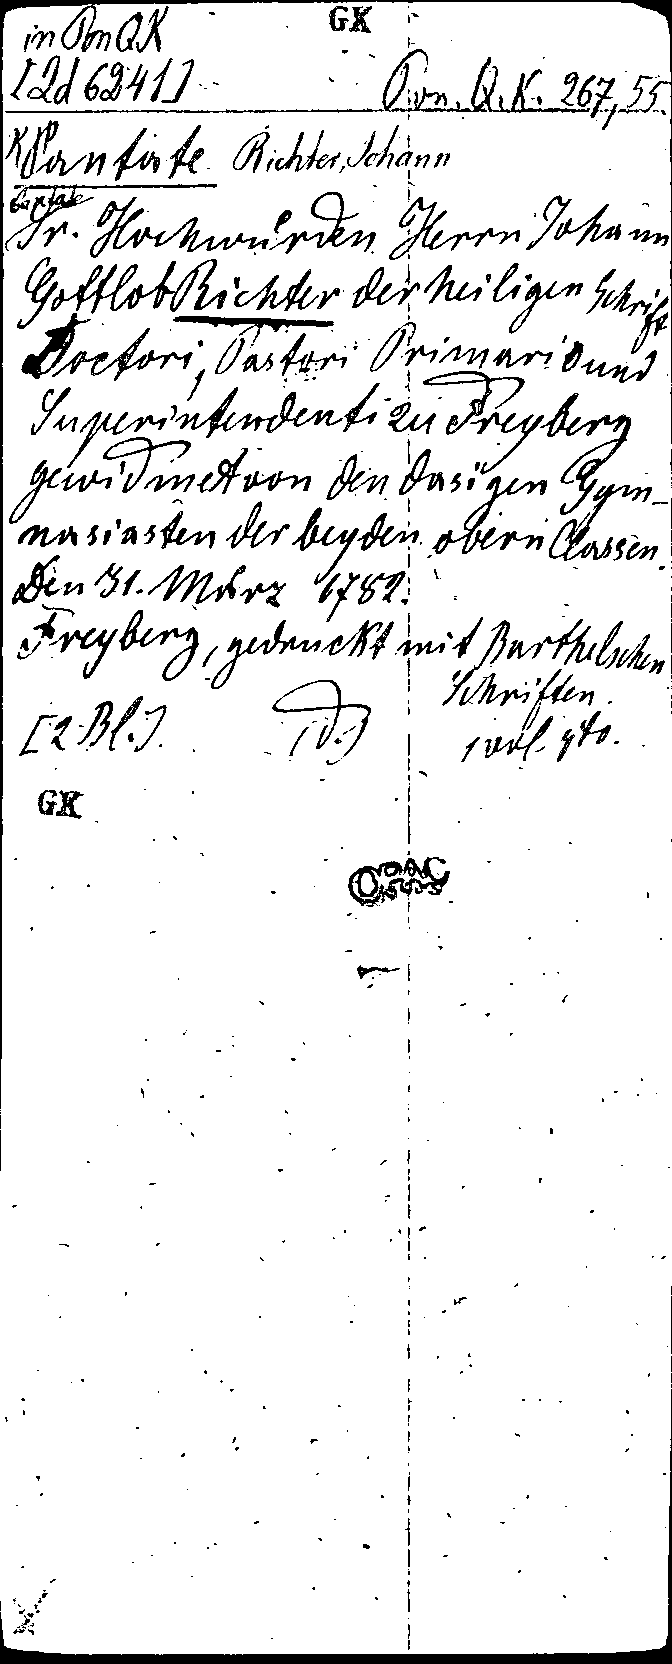 GK
in Pon QK
[2d 6241] Pon. Q.K. 267, 55.
Kantate Richter, Johann
Cantate
Sr. Hochwürden Herrn Johann
Gottlob Richter der heiligen Schrift
Doctori, Pastori Primario und
Superintendenti zu Freyberg
gewidmet von den dasigen Gym-
nasiasten der beyden obern Classen.
Den 31. März 1782.
Freyberg, gedruckt mit Barthelschen
Schriften.
[2 Bl.] (d.)
GK